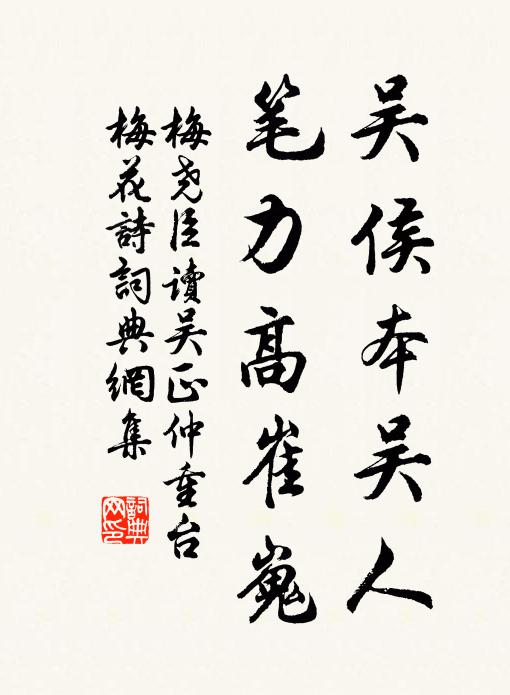 吴侯本吴人
笔力高崔嵬
梅尧臣读吴正仲重台
梅花詩詞典網集
詞典网印